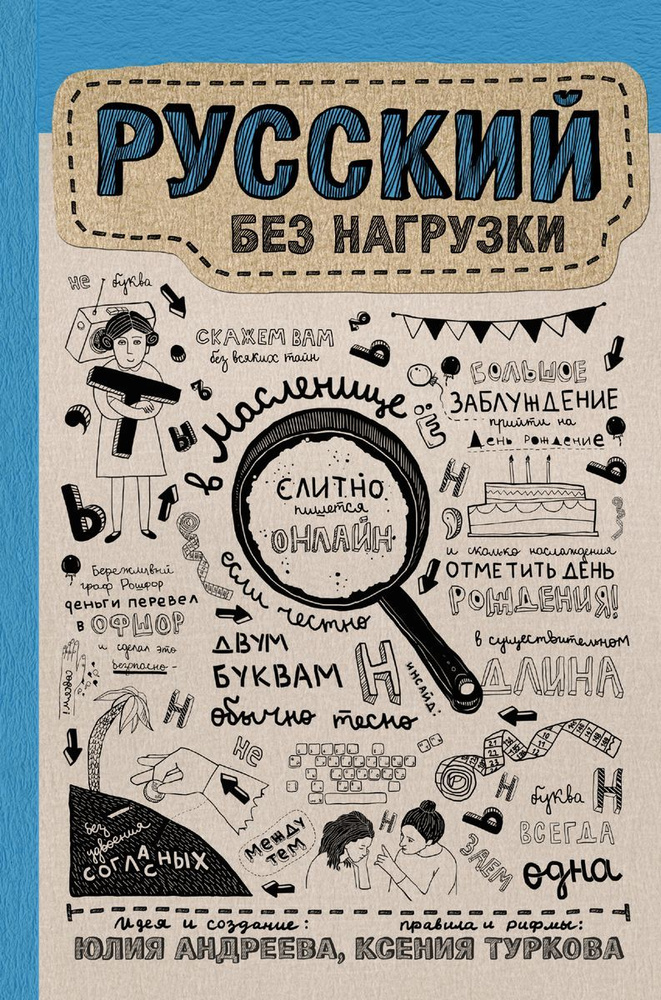 РУССКИЙ
БЕЗ НАГРУЗКИ
не буква
Т
СКАЖЕМ ВАМ
без всяких тайн
СЛИТНО
пишется
ОНЛАЙН
в Масленице
если честно
ДВУМ
БУКВАМ Н
обычно тесно
БОЛЬШОЕ
ЗАБЛУЖДЕНИЕ
прийти на
День рождение
и сколько наслаждения
ОТМЕТИТЬ ДЕНЬ
РОЖДЕНИЯ!
Бережливый
граф Рошфор
деньги перевел
в ОФШОР
и сделал это
безопасно –
совсем!
без
удвоения
СОГЛАСНЫХ
не
МЕЖДУ
ТЕМ
инсайд:
в существительном
ДЛИНА
буква Н
ВСЕГДА
одна
ЗАЕМ
Идея и создание:
ЮЛИЯ АНДРЕЕВА,
правила и рифмы:
КСЕНИЯ ТУРКОВА